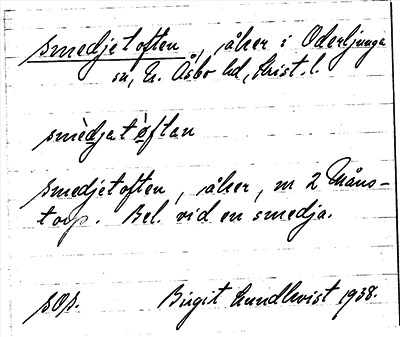 Smedjetoften, åker i Oderljunga
sn, Ö. Åsbo hd, Krist. l.
smèdjatòftan
Smedjetoften, åker, m 2 Måns-
torp. Bel. vid en smedja.
sOp. Birgit Lundkvist 1938.